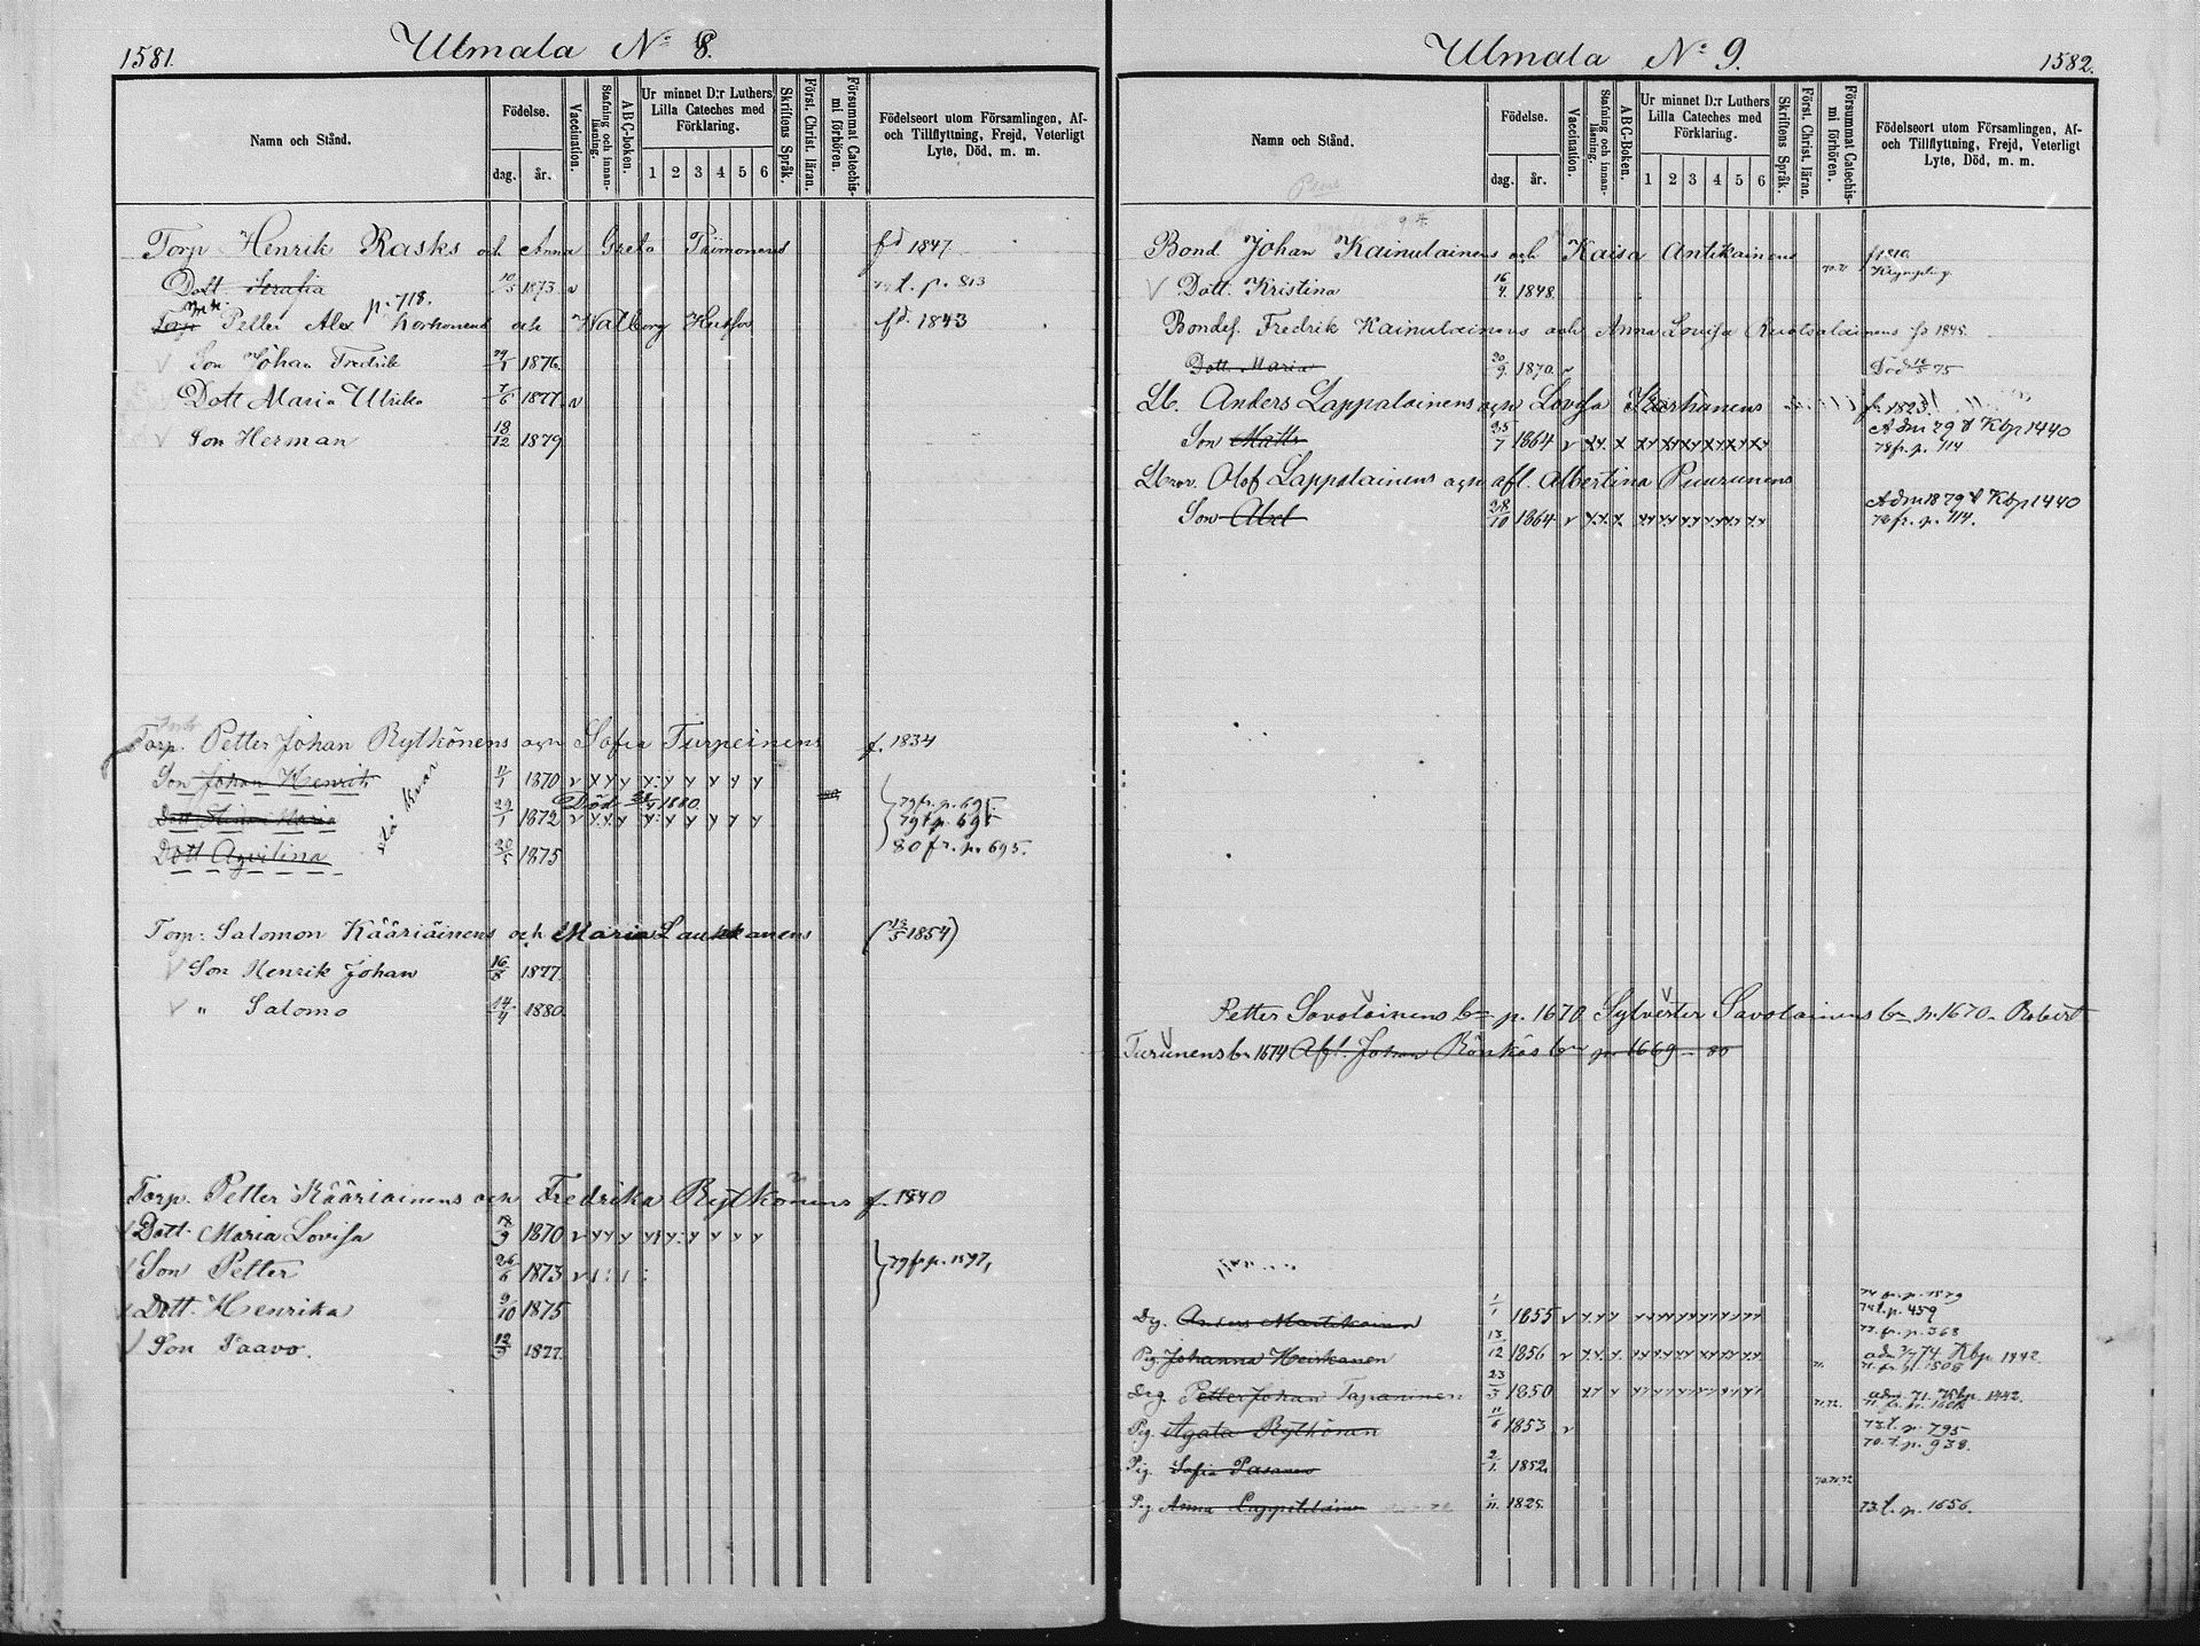 1581.
Ulmala No 8.
Namn och Stånd.
Födelse.
dag.
år.
Vaccination.
Stafning och innanläsning.
ABC-boken.
Ur minnet D:r Luthers Lilla Cateches med Förklaring.
1 2 3 4 5 6
Skriftens Språk.
Först. Christ. läran.
Försummat Catechismi förhören.
Födelseort utom Församlingen, Af- och Tillflyttning, Frejd, Veterligt Lyte, Död, m. m.
Torp Henrik Rasks och Anna Greta Piimonens fd 1847
Dott. Serafia 10/5 1873 v t. p. 813
p. 718.
Petter Alex Korhonens och Walborg fd. 1843
Son Johan Fredrik 1876.
Dott Maria Ulrika 7/6 1877 v
Son Herman 18/12 1879
Torp. Petter Johan Rytkönens och Sofia Turpeinens f. 1834
Son Johan Henrik 11/1 1870 v y y y y y y y y y
Död 1880.
Dott Stina Maria 29/1 1872 v y y y y y y y y y
79 fr. p. 695.
79 t p. 695
Dött Aqvilina 20/5 1875 80 fr. p. 695.
Torp: Salomon Kääriäinens och Maria Laukkanens (13/5 1854)
Son Henrik Johan 16/8 1877
" Salomo 14/4 1880
Torp. Petter Kääriainens och Fredrika Rytkönens f. 1840
Dott. Maria Lovisa 1870 v y y y y y y y y y
Son Petter 26/6 1873 79 fr p. 1597,
Dott. Henrika 9/10 1875
Son Paavo. 12/9 1877.
Ulmala No 9.
1582.
Namn och Stånd.
Födelse.
dag.
år.
Vaccination.
Stafning och innanläsning.
ABC-Boken.
Ur minnet D:r Luthers Lilla Cateches med Förklaring.
1 2 3 4 5 6
Skriftens Språk.
Först. Christ. läran.
Försummat Catechismi förhören.
Födelseort utom Församlingen, Af- och Tillflyttning, Frejd, Veterligt Lyte, Död, m. m.
Bond Johan Kainulainens och Kaisa Antikainens f 1810.
Dött. Kristina 16/4. 1848.
Bondes. Fredrik Kainulainens och Anna Lovisa Ruotsalainens fd 1845.
Dott. Maria 20/9. 1870. v Död 75
Lb. Anders Lappalainens och Lovisa Korhonens f. 1823.
Son Matts 25/7 1864 v Adm 79 & Kbp 1440
78 fr. p. 114
Olof Lappalainens och afl. Albertina Puurunens
Son Abel 28/10 1864 v Adm 1879 & Kbp 1440
78 fr. p. 114.
Petter Savolainens bn p. 1670 Sylvester Savolainens bn p. 1670. Robert
Turunens bn 1674 Afl. Johan Rönkös bn p. 1669 80
74 fr. p. 1579
Drg. Anders Martikainen 1/1 1855 v 74 t. p. 459
73. fr. p. 368
Pig. Johanna Heiskanen 13/12 1856 v adm 74 Kbp 1442
71. fr. p. 1508
Drg. Petter Johan Tapaninen 23/3 1850 adm. 71. Kbp. 1442.
Pig. Agata Rytkönen 11/6 1853 v 73 t. p. 795
70. t. p. 938.
Pig. Sofia Pasanen 2/1. 1852.
Pig Anna Lappalainen 1/11. 1825. 73. t. p. 1656.